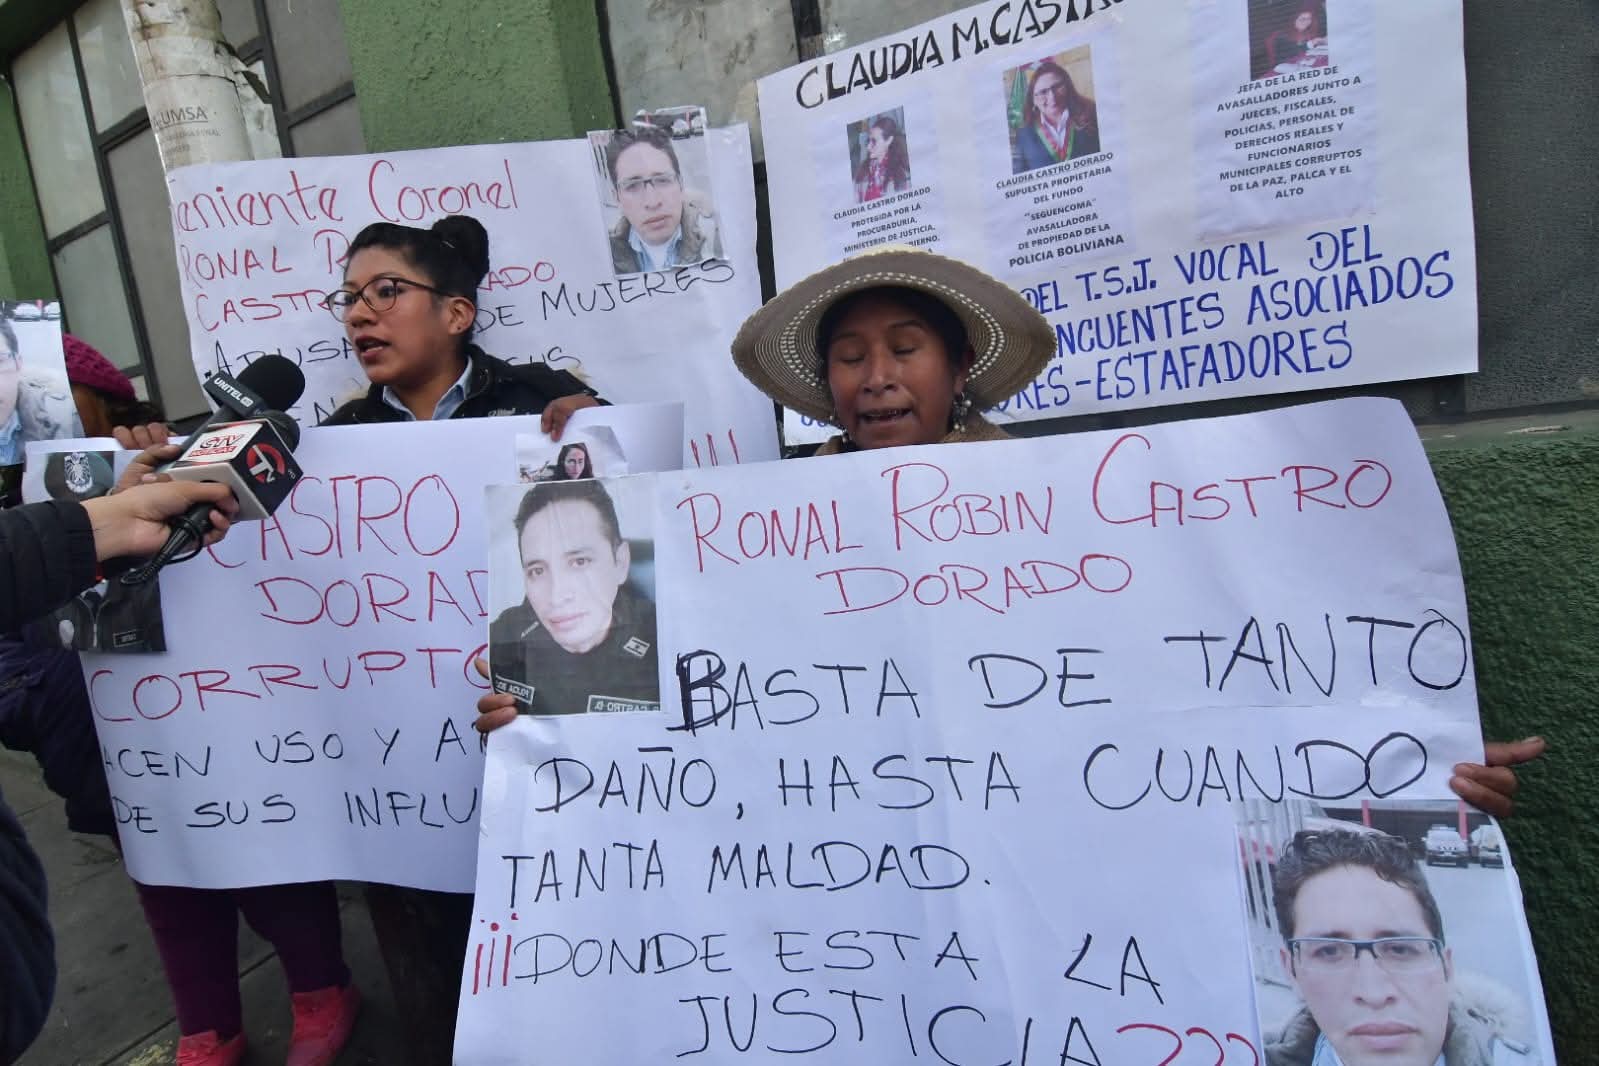 UMSA
Teniente Coronel
RONAL
CASTRO DORADO
DE MUJERES
SUS
CLAUDIA M. CASTRO
CLAUDIA CASTRO DORADO
PROTEGIDA POR LA
PROCURADURIA,
MINISTERIO DE JUSTICIA,
CLAUDIA CASTRO DORADO
SUPUESTA PROPIETARIA
DEL FUNDO
"SEGUENCOMA"
AVASALLADORA
DE PROPIEDAD DE LA
POLICIA BOLIVIANA
JEFA DE LA RED DE
AVASALLADORES JUNTO A
JUECES, FISCALES,
POLICIAS, PERSONAL DE
DERECHOS REALES Y
FUNCIONARIOS
MUNICIPALES CORRUPTOS
DE LA PAZ, PALCA Y EL
ALTO
DEL T.S.J. VOCAL DEL
INCUENTES ASOCIADOS
RES-ESTAFADORES
UNITEL
GTV
NOTICIAS
CASTRO
DORAD
CORRUPTO
ACEN USO Y A
DE SUS INFLU
!!!
RONAL ROBIN CASTRO
DORADO
BASTA DE TANTO
DAÑO, HASTA CUANDO
TANTA MALDAD.
¡¡¡DONDE ESTA LA
JUSTICIA???